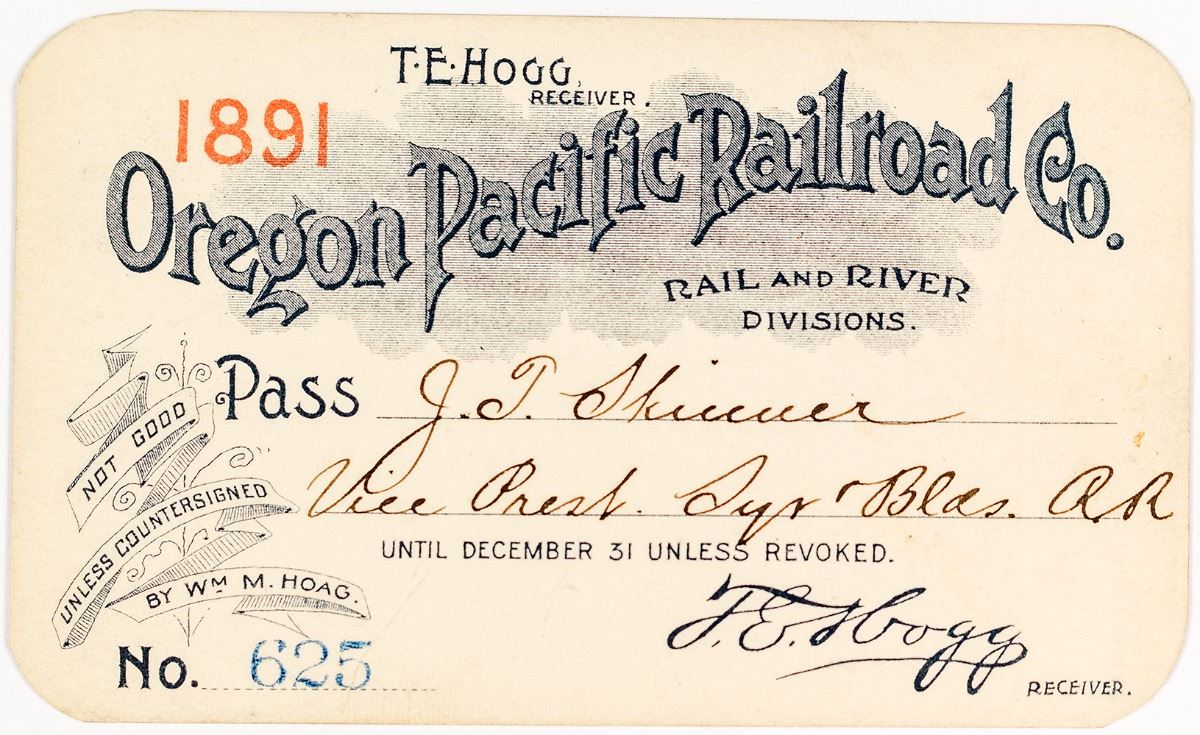 T.E. HOGG,
RECEIVER.
1891
Oregon Pacific Railroad Co.
RAIL AND RIVER
DIVISIONS.
Pass J. T. Skinner
Vice Prest. Syr & Blds. R.R
UNTIL DECEMBER 31 UNLESS REVOKED.
NOT GOOD
UNLESS COUNTERSIGNED
BY WM M. HOAG.
T. E. Hogg
RECEIVER.
No. 625